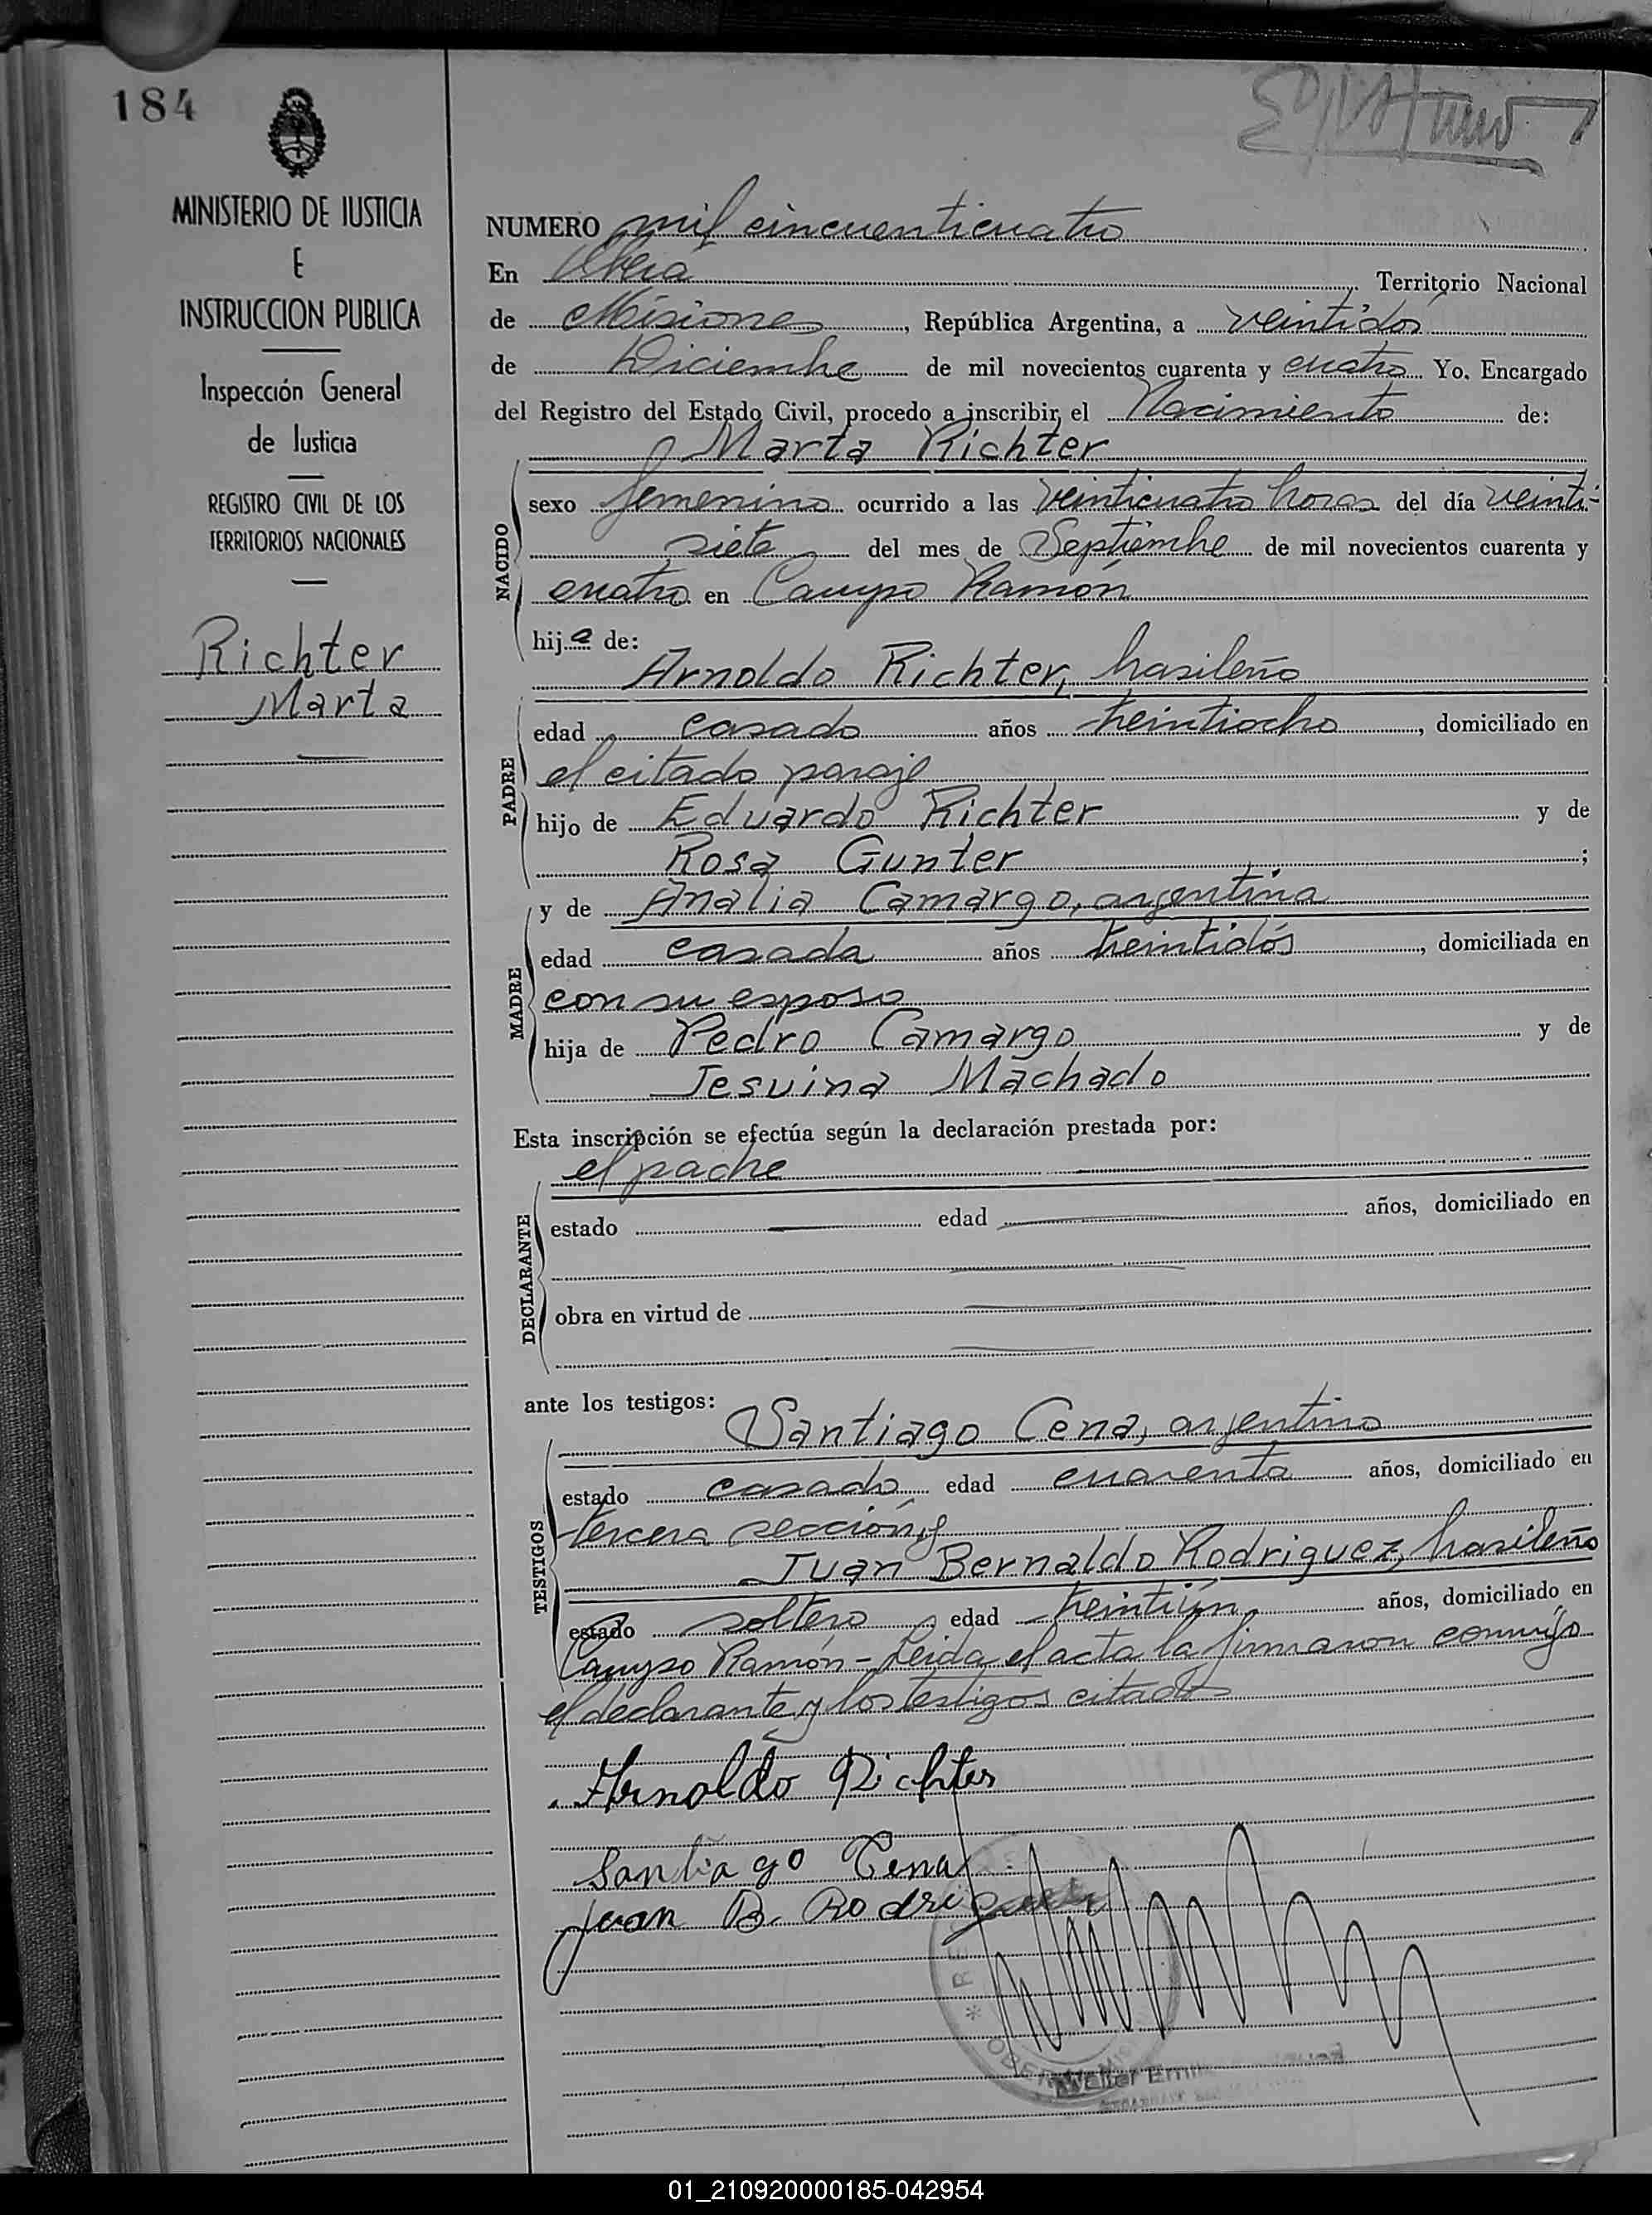 184
MINISTERIO DE JUSTICIA
E
INSTRUCCION PUBLICA
Inspección General
de Justicia
REGISTRO CIVIL DE LOS
TERRITORIOS NACIONALES
Richter
Marta
NUMERO mil cincuenticuatro
En Oberá Territorio Nacional
de Misiones, República Argentina, a veintidós
de Diciembre de mil novecientos cuarenta y cuatro Yo. Encargado
del Registro del Estado Civil, procedo a inscribir el Nacimiento de:
Marta Richter
NACIDO
sexo femenino ocurrido a las veinticuatro horas del día veinti-
siete del mes de Septiembre de mil novecientos cuarenta y
cuatro en Campo Ramón
hija de:
Arnoldo Richter, brasileño
PADRE
edad casado años treintiocho, domiciliado en
el citado paraje
hijo de Eduardo Richter y de
Rosa Gunter;
y de Analia Camargo, argentina
MADRE
edad casada años treintidós, domiciliada en
con su esposo
hija de Pedro Camargo y de
Jesuina Machado
Esta inscripción se efectúa según la declaración prestada por:
el padre
DECLARANTE
estado edad años, domiciliado en
obra en virtud de
ante los testigos:
Santiago Cena, argentino
TESTIGOS
estado casado edad cuarenta años, domiciliado en
tercera sección, y
Juan Bernaldo Rodriguez, brasileño
estado soltero edad treintiún años, domiciliado en
Campo Ramón - Leida el acta la firmaron conmigo
el declarante y los testigos citados
Arnoldo Richter
Santiago Cena
Juan B. Rodriguez
OBERÁ
Walter
01_210920000185-042954